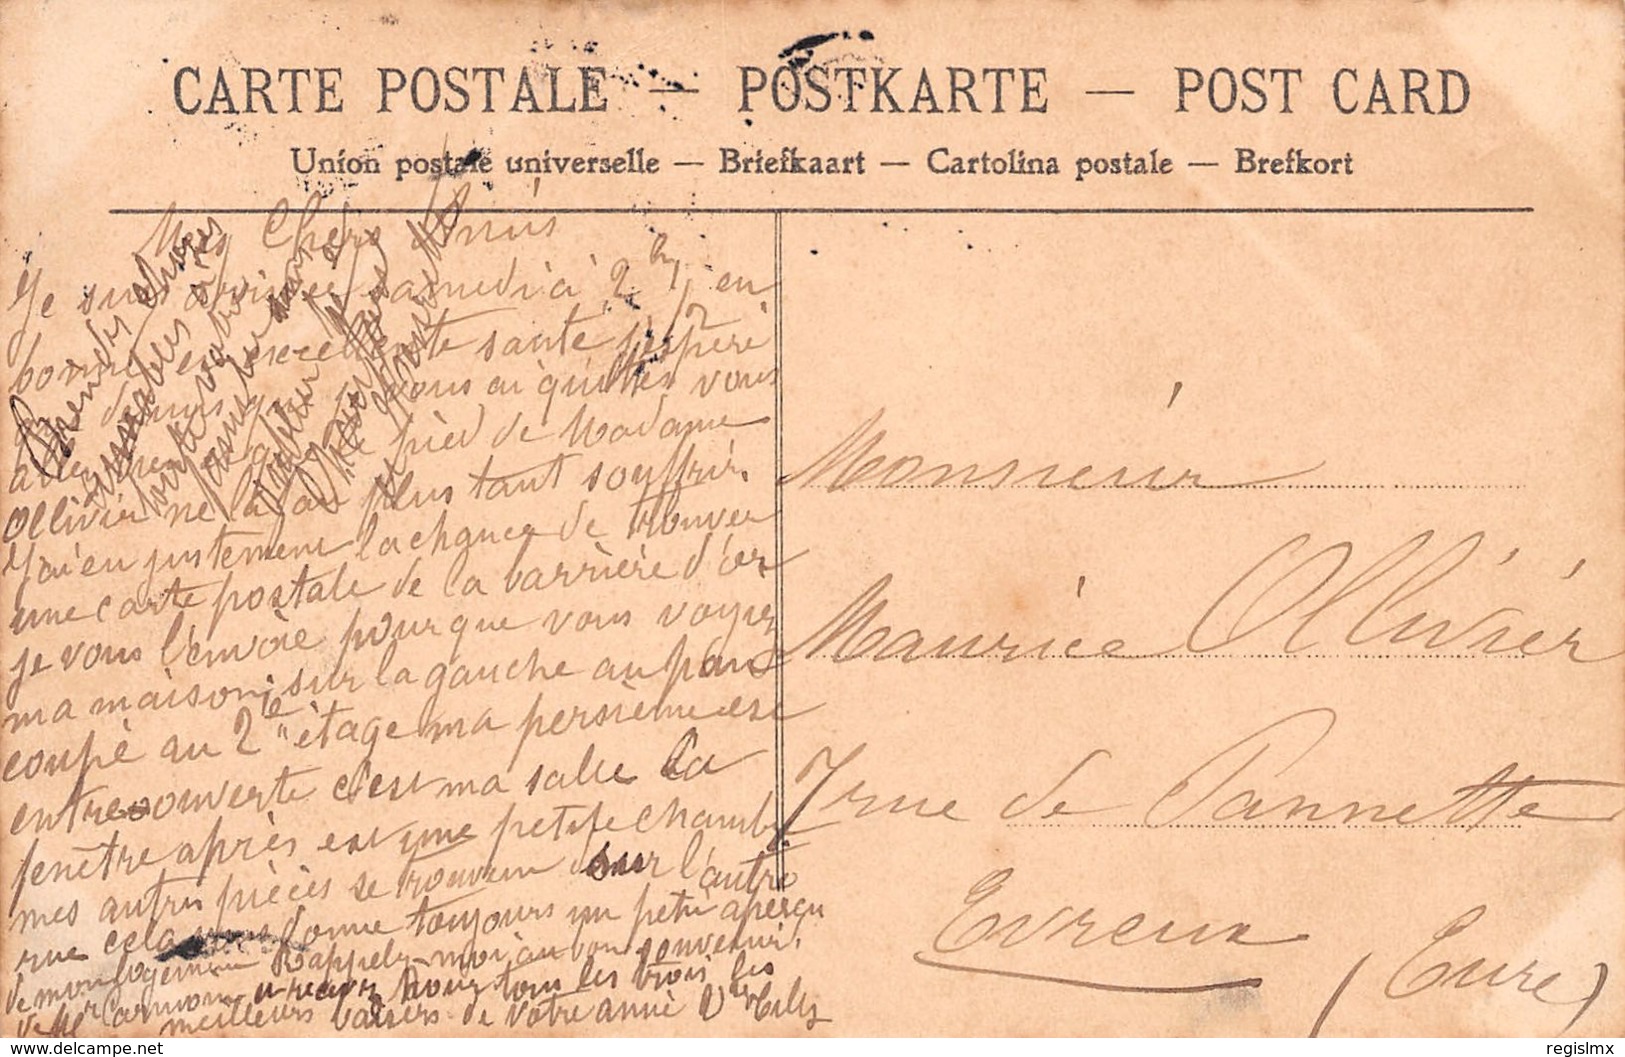 CARTE POSTALE — POSTKARTE — POST CARD
Union postale universelle — Briefkaart — Cartolina postale — Brefkort
Mes Chers Amis
Je suis arrivée samedi à 2 h ½ en
bonne et excellente santé j'espère
que depuis que je vous ai quittés vous
allez bien le pied de Madame
Ollivier ne la fait plus tant souffrir.
J'ai eu justement la chance de trouver
une carte postale de la barrière d'or
je vous l'envoie pour que vous voyiez
ma maison; sur la gauche au pan
coupé au 2e étage ma persienne est
entreouverte c'est ma salle la
fenêtre après est une petite chambre
mes autres pièces se trouvent sur l'autre
rue cela vous donne toujours un petit aperçu
de mon logement Rappelez-moi au bon souvenir
de Mr Carmon recevez tous les trois les
meilleurs baisers de votre amie
choses
aimables
Monsieur
Maurice Ollivier
7 rue de Pannette
Evreux
(Eure)
delcampe.net
regislmx